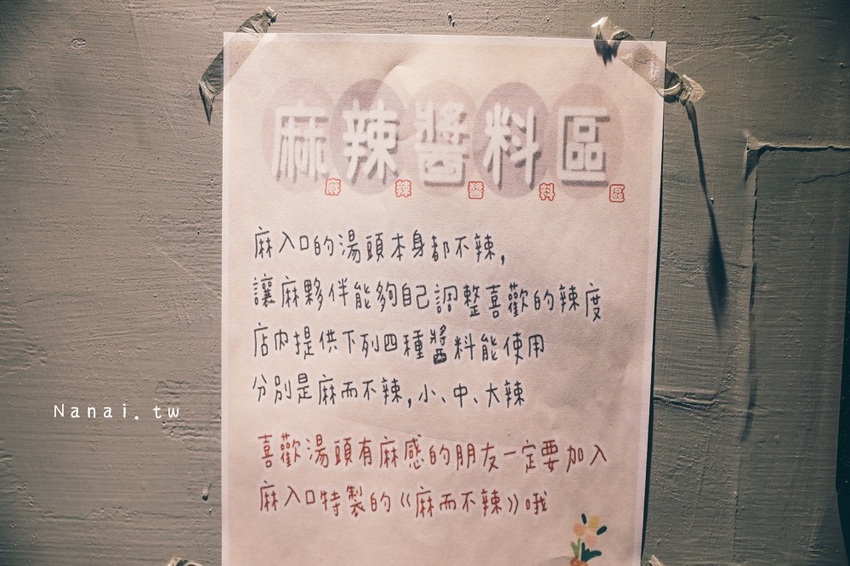 麻辣醬料區
麻辣醬料區
麻入口的湯頭本身都不辣,
讓麻夥伴能夠自己調整喜歡的辣度
店內提供下列四種醬料能使用
分別是麻而不辣,小、中、大辣
喜歡湯頭有麻感的朋友一定要加入
麻入口特製的《麻而不辣》哦
Nanai.tw